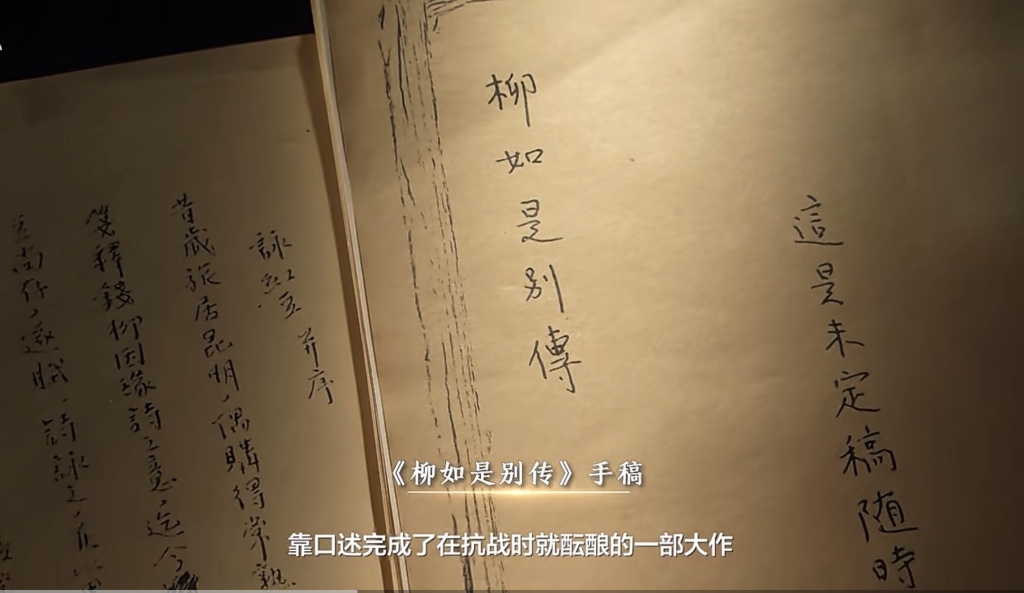 這是未定稿随時
柳如是别傳
詠紅豆 并序
昔歲旅居昆明,偶購得常熟
箋釋錢柳因緣詩之意,迄今
尚存,遂賦一詩詠之,
《柳如是别传》手稿
靠口述完成了在抗战时就酝酿的一部大作